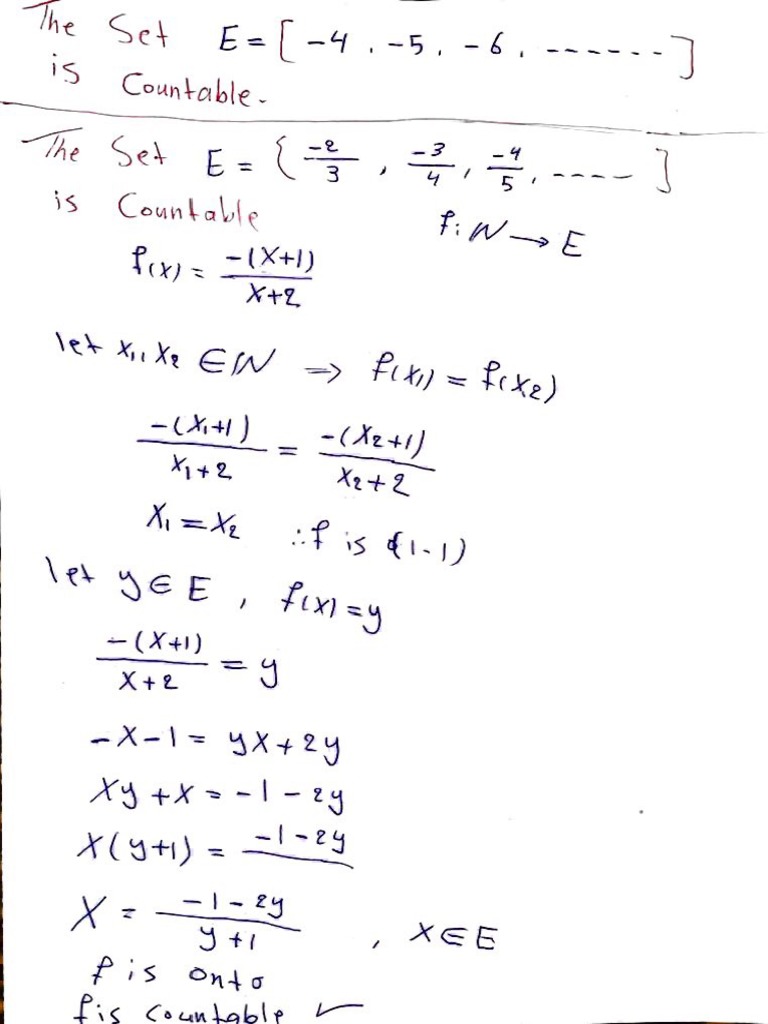 The Set E = [ -4 , -5 , -6 , ------- ]
is Countable.
The Set E = { -2/3 , -3/4 , -4/5 , ---- ]
is Countable
f: N → E
f(x) = -(x+1)/x+2
let x1, x2 ∈ N ⇒ f(x1) = f(x2)
-(x1+1)/x1+2 = -(x2+1)/x2+2
x1 = x2 ∴ f is (1-1)
let y ∈ E , f(x) = y
-(x+1)/x+2 = y
-x-1 = yx+2y
xy+x = -1-2y
x(y+1) = -1-2y
x = -1-2y/y+1 , x ∈ E
f is onto
f is countable ✓